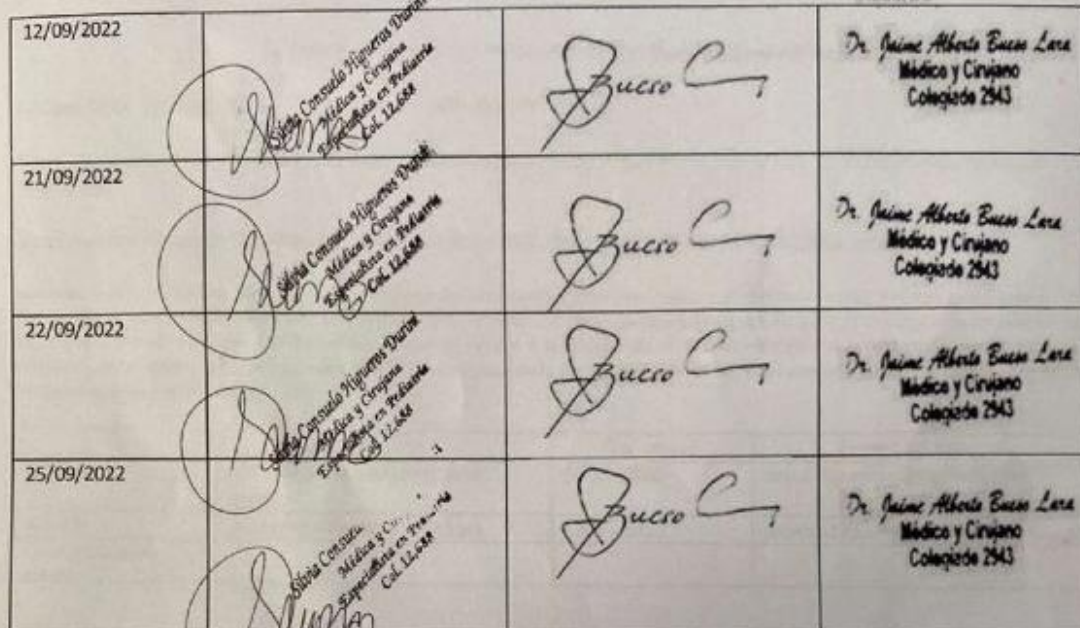 12/09/2022
Silvia Consuelo Higueros Durini
Médica y Cirujana
Especialista en Pediatría
Col. 12.688
Bueso
Dr. Jaime Alberto Bueso Lara
Médico y Cirujano
Colegiado 2943
21/09/2022
Silvia Consuelo Higueros Durini
Médica y Cirujana
Especialista en Pediatría
Col. 12.688
Bueso
Dr. Jaime Alberto Bueso Lara
Médico y Cirujano
Colegiado 2943
22/09/2022
Silvia Consuelo Higueros Durini
Médica y Cirujana
Especialista en Pediatría
Col. 12.688
Bueso
Dr. Jaime Alberto Bueso Lara
Médico y Cirujano
Colegiado 2943
25/09/2022
Silvia
Médica y
Especialista en
Col. 12.688
Bueso
Dr. Jaime Alberto Bueso Lara
Médico y Cirujano
Colegiado 2943